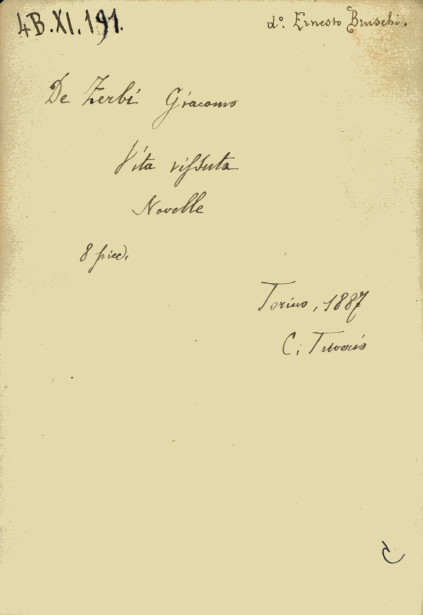 4B.XI.191.
d.º Ernesto Bruschi.
De Zerbi Giacomo
Vita vissuta
Novelle
8 picc.
Torino, 1887
C.